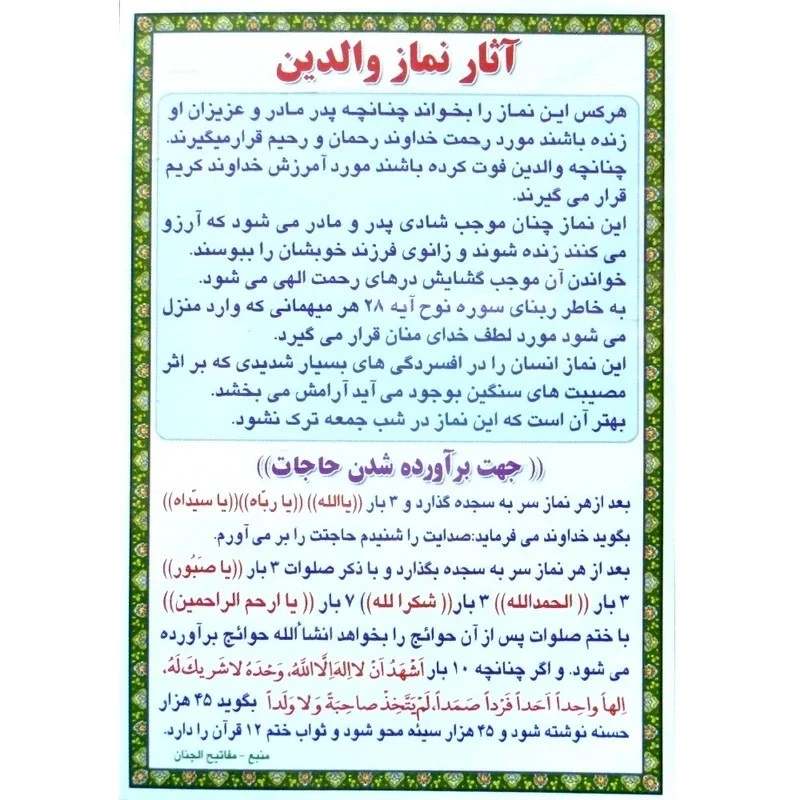 آثار نماز والدین
هرکس این نماز را بخواند چنانچه پدر مادر و عزیزان او
زنده باشند مورد رحمت خداوند رحمان و رحیم قرارمیگیرند.
چنانچه والدین فوت کرده باشند مورد آمرزش خداوند کریم
قرار می گیرند.
این نماز چنان موجب شادی پدر و مادر می شود که آرزو
می کنند زنده شوند و زانوی فرزند خویشان را ببوسند.
خواندن آن موجب گشایش درهای رحمت الهی می شود.
به خاطر ربنای سوره نوح آیه ۲۸ هر میهمانی که وارد منزل
می شود مورد لطف خدای منان قرار می گیرد.
این نماز انسان را در افسردگی های بسیار شدیدی که بر اثر
مصیبت های سنگین بوجود می آید آرامش می بخشد.
بهتر آن است که این نماز در شب جمعه ترک نشود.
(( جهت برآورده شدن حاجات))
بعد ازهر نماز سر به سجده گذارد و ۳ بار ((یاالله)) ((یا ربّاه))((یا سیّداه))
بگوید خداوند می فرماید:صدایت را شنیدم حاجتت را بر می آورم.
بعد از هر نماز سر به سجده بگذارد و با ذکر صلوات ۳ بار ((یا صَبُور))
۳ بار (( الحمدالله)) ۳ بار(( شکرا لله)) ۷ بار (( یا ارحم الراحمین))
با ختم صلوات پس از آن حوائج را بخواهد انشاألله حوائج برآورده
می شود. و اگر چنانچه ۱۰ بار اَشْهَدُ اَنْ لا اِلهَ اِلَّا اللَّهُ، وَحْدَهُ لا شَریكَ لَهُ،
اِلهاً واحِداً اَحَداً فَرْداً صَمَداً، لَمْ یَتَّخِذْ صاحِبَةً وَلا وَلَداً بگوید ۴۵ هزار
حسنه نوشته شود و ۴۵ هزار سیئه محو شود و ثواب ختم ۱۲ قرآن را دارد.
منبع - مفاتیح الجنان